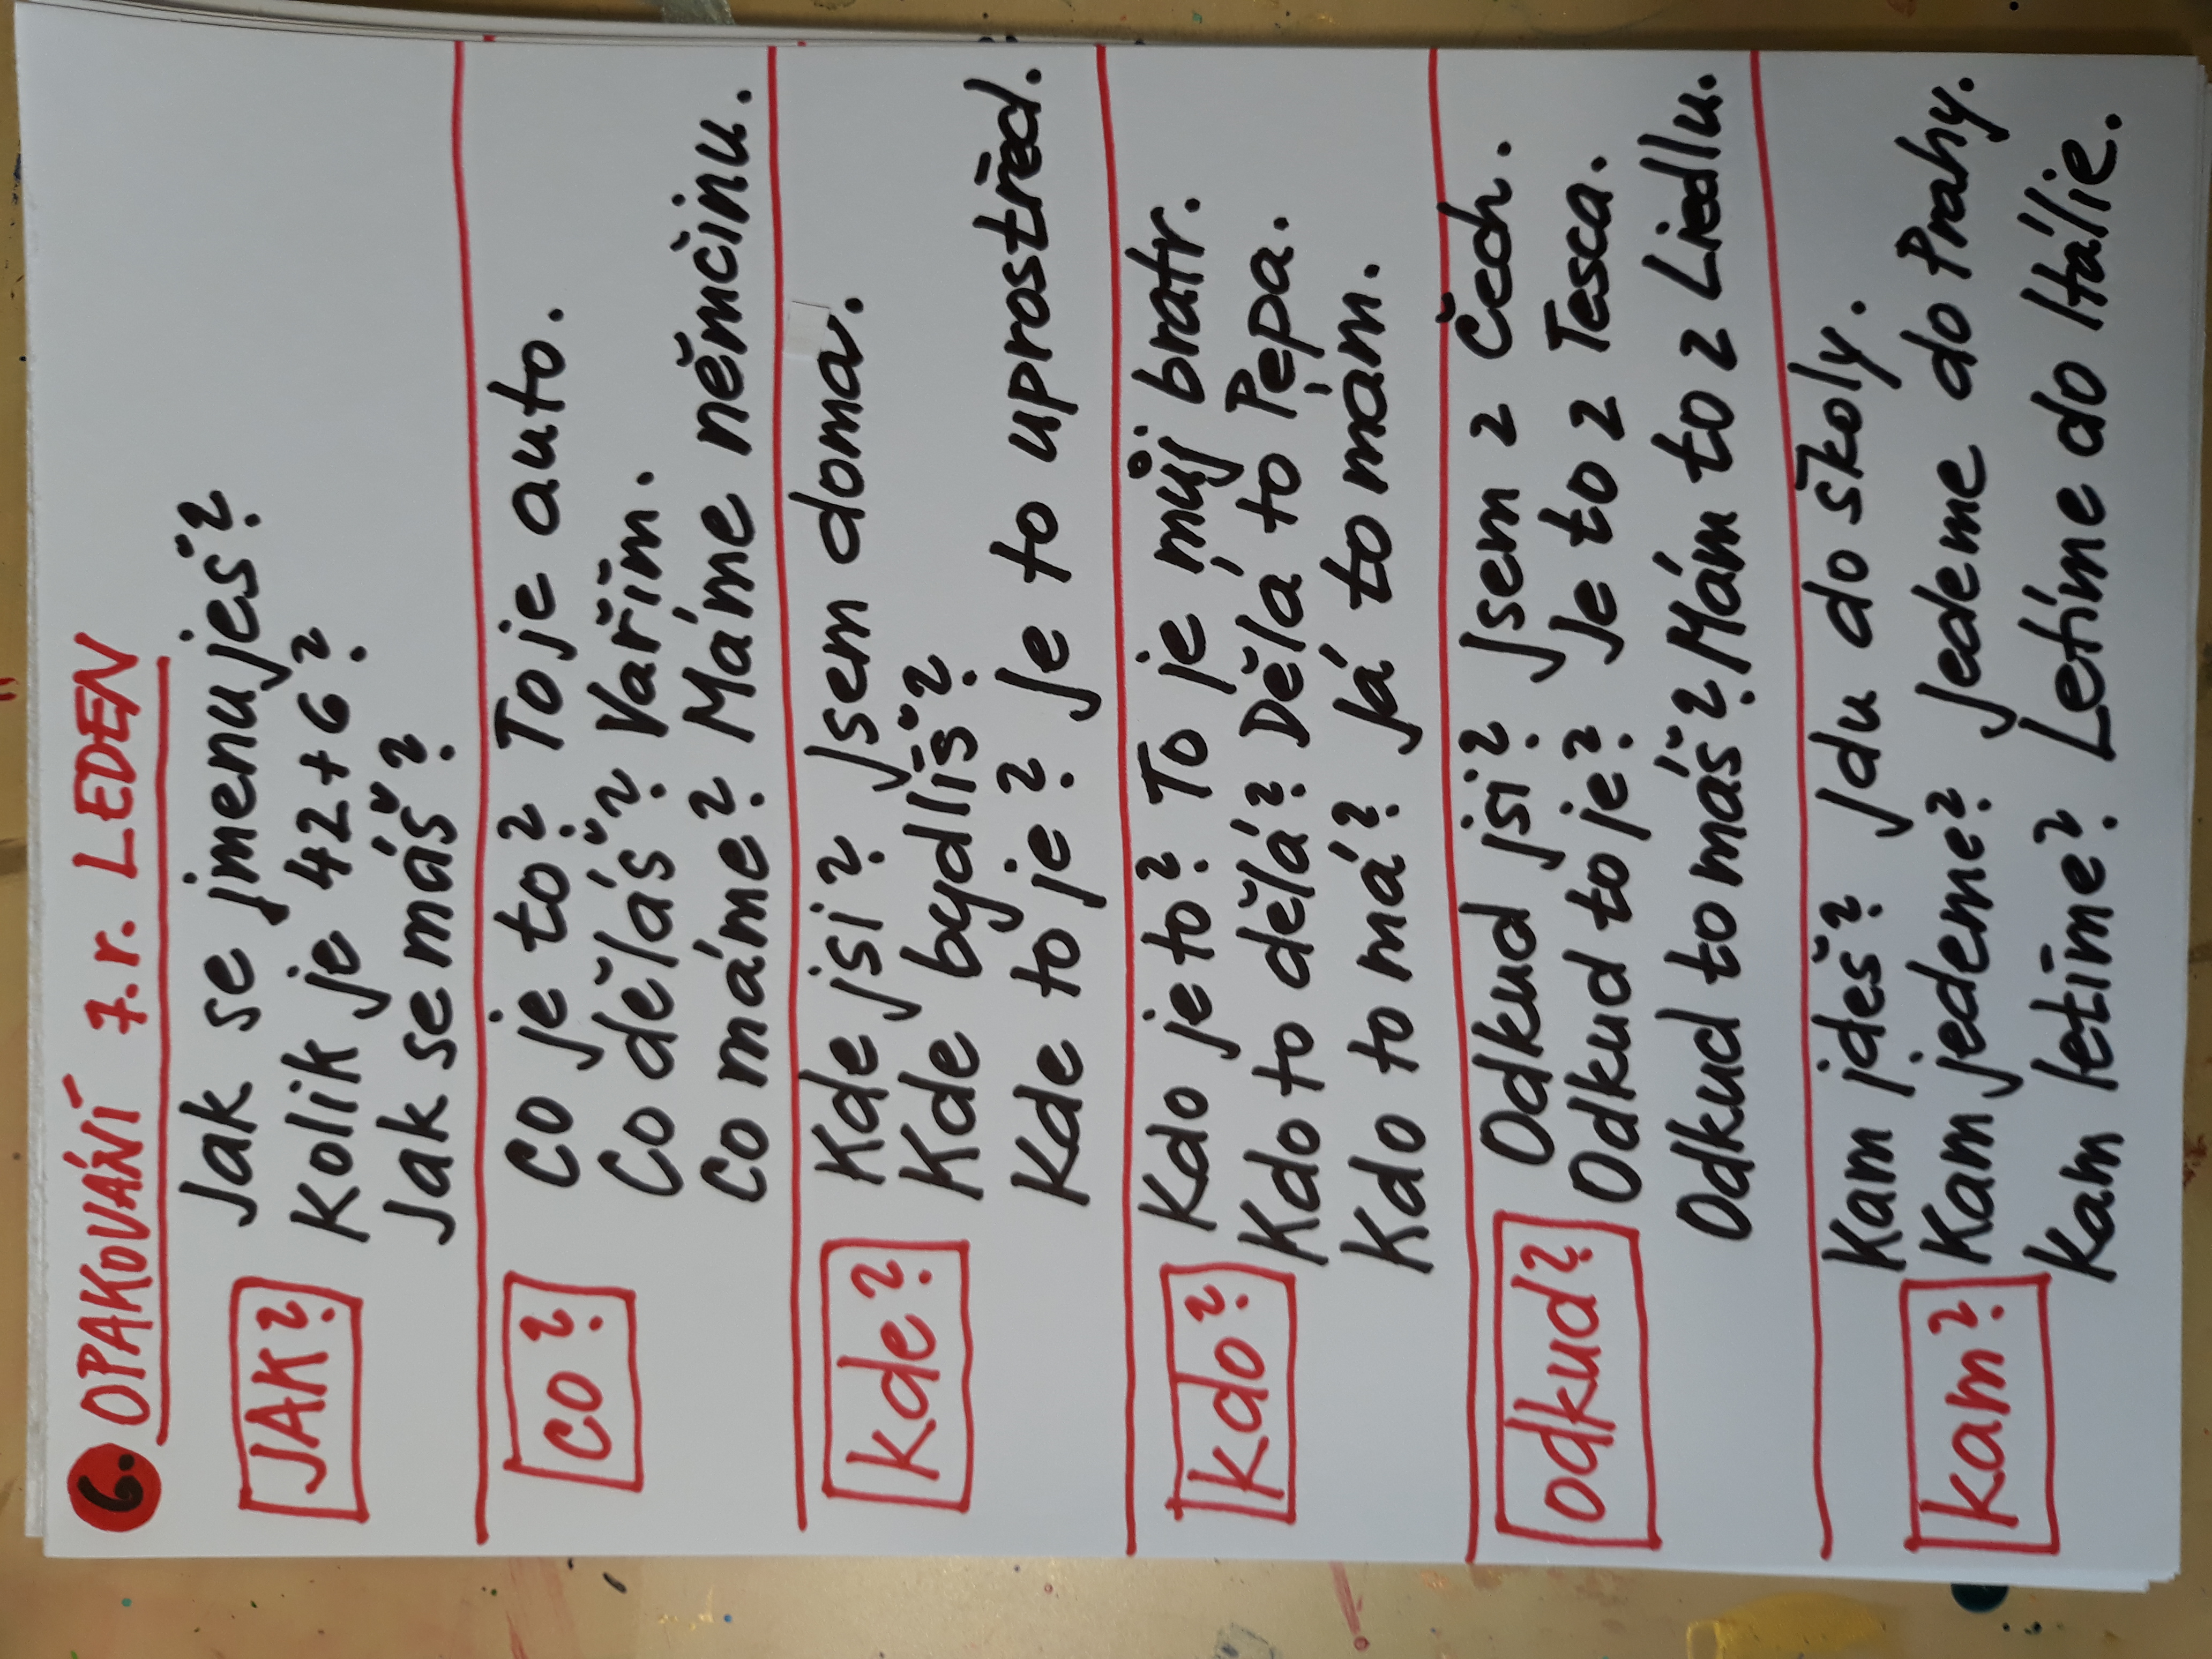 6. OPAKOVÁNÍ 7.r. LEDEN
JAK?
Jak se jmenuješ?
Kolik je 42+6?
Jak se máš?
CO?
Co je to? To je auto.
Co děláš? Vařím.
Co máme? Máme němčinu.
Kde?
Kde jsi? Jsem doma.
Kde bydlíš?
Kde to je? Je to uprostřed.
Kdo?
Kdo je to? To je můj bratr.
Kdo to dělá? Dělá to Pepa.
Kdo to má? Já to mám.
odkud?
Odkud jsi? Jsem z Čech.
Odkud to je? Je to z Tesca.
Odkud to máš? Mám to z Liedlu.
kam?
Kam jdeš? Jdu do školy.
Kam jedeme? Jedeme do Prahy.
Kam letíme? Letíme do Itálie.